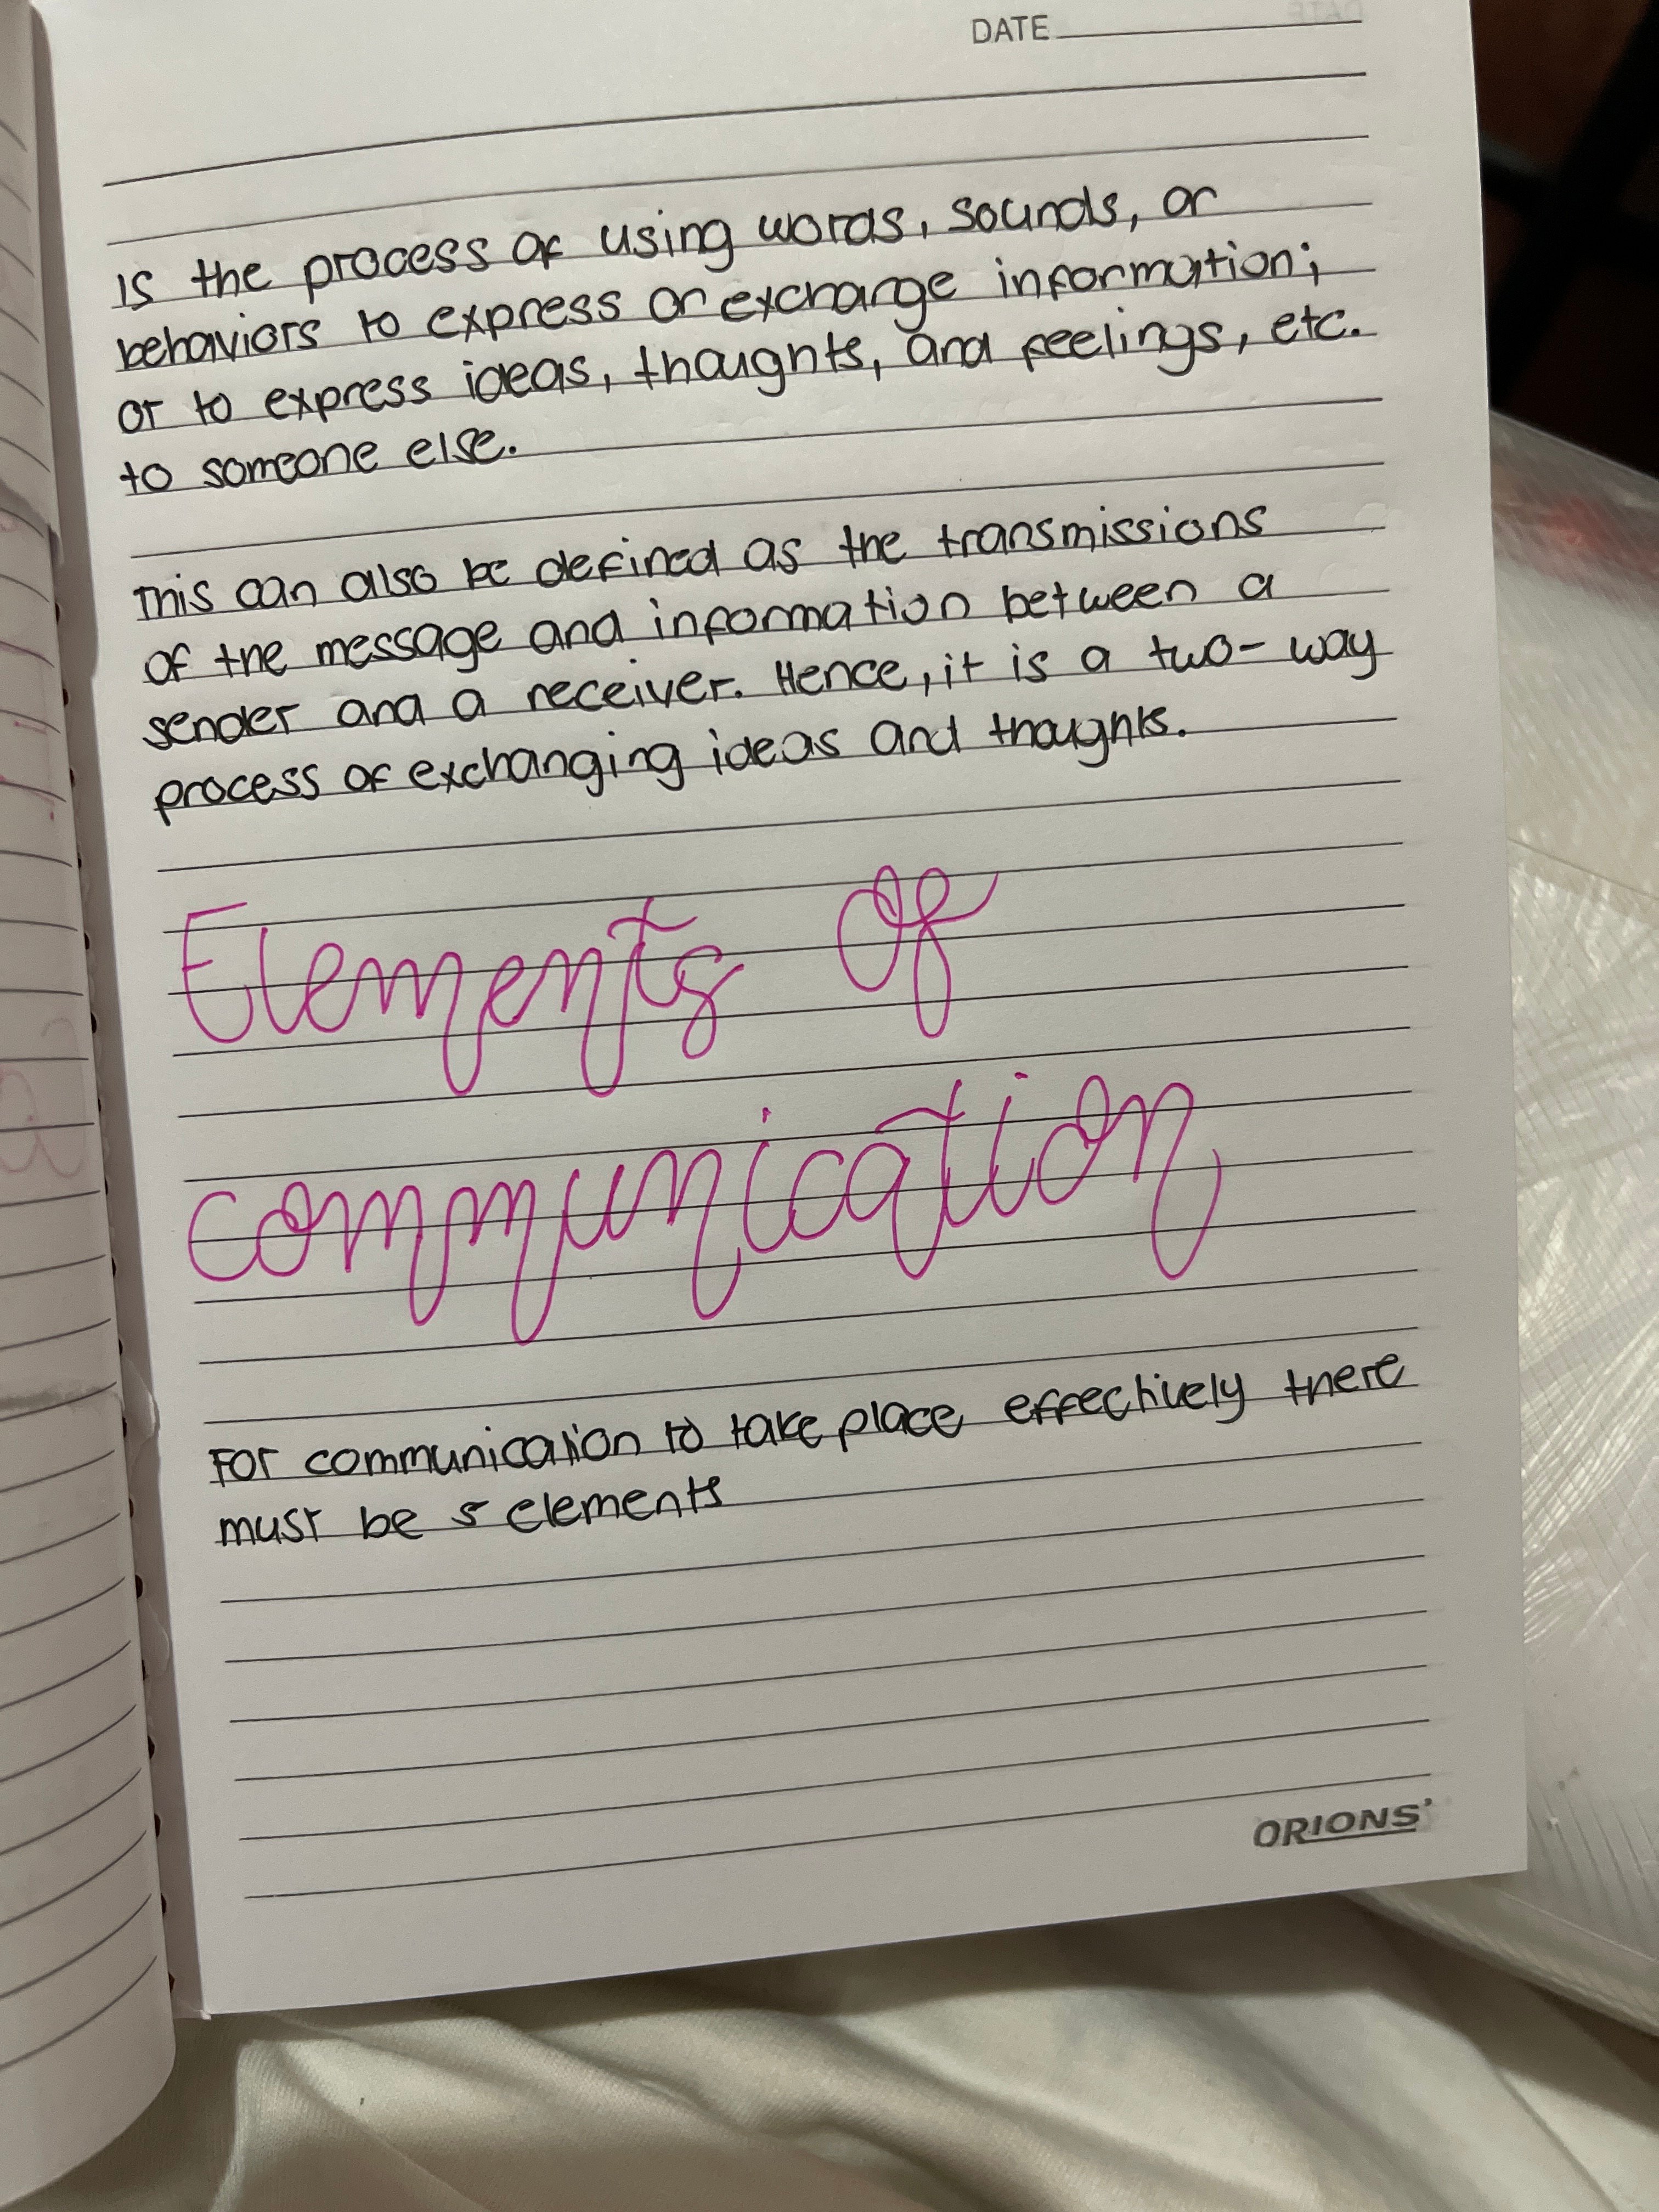 DATE
is the process of using words, sounds, or
behaviors to express or exchange information;
or to express ideas, thoughts, and feelings, etc.
to someone else.
This can also be defined as the transmissions
of the message and information between a
sender and a receiver. Hence, it is a two-way
process of exchanging ideas and thoughts.
Elements Of
communication
For communication to take place effectively there
must be 5 elements
ORIONS'